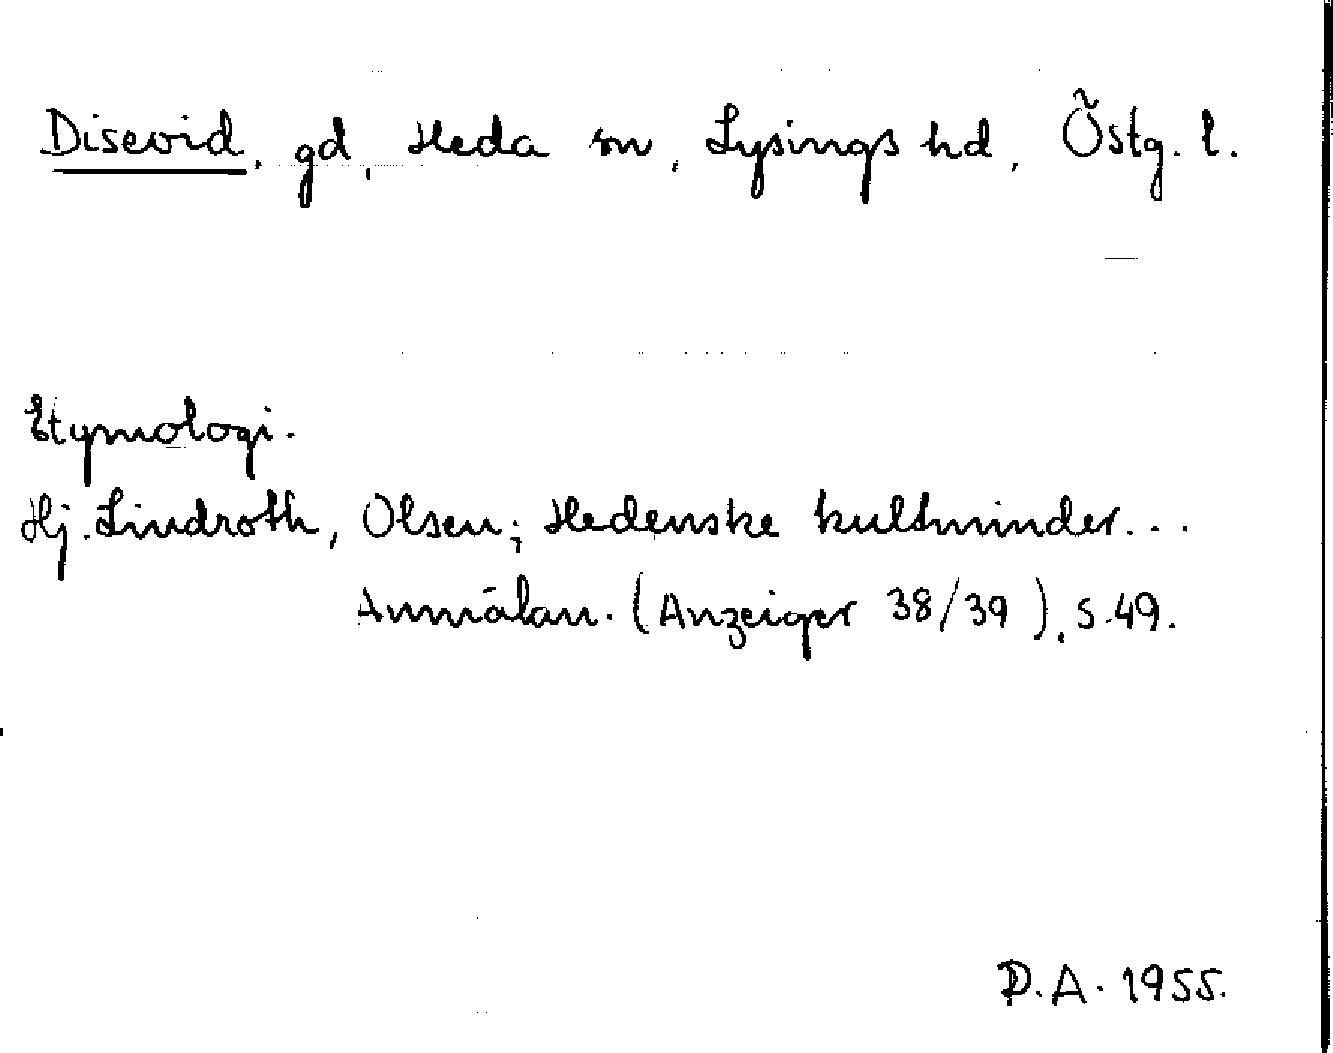 Disevid, gd, Heda sn, Lysings hd, Östg. l.
Etymologi.
Hj. Lindroth, Olsen; Hedenske kultminder...
Anmälan. (Anzeiger 38/39), s. 49.
D.A. 1955.